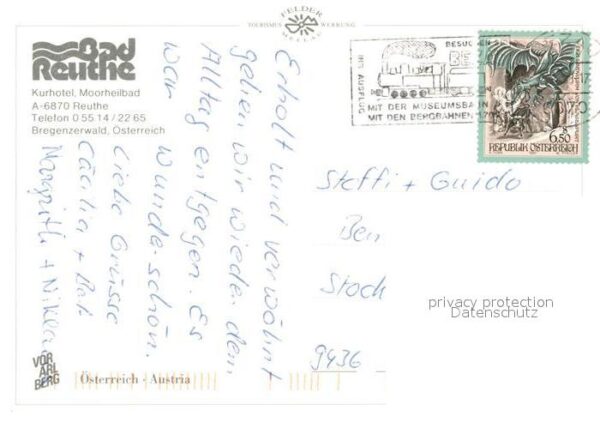 FELDER
TOURISMUS WERBUNG
MELLAU
Bad
Reuthe
Kurhotel, Moorheilbad
A-6870 Reuthe
Telefon 0 55 14 / 22 65
Bregenzerwald, Österreich
Erholt und verwöhnt
gehen wir wieder dem
Alltag entgegen. Es
war wunderschön.
Liebe Grüsse
Cäcilia +
Margrith + Niklaus
VOR
ARL
BERG
Österreich - Austria
BESUCHEN
IHR AUSFLUG
MIT DER MUSEUMSBAHN
MIT DEN BERGBAHNEN
6,50
REPUBLIK ÖSTERREICH
Steffi + Guido
Ben
Stock
9436
privacy protection
Datenschutz